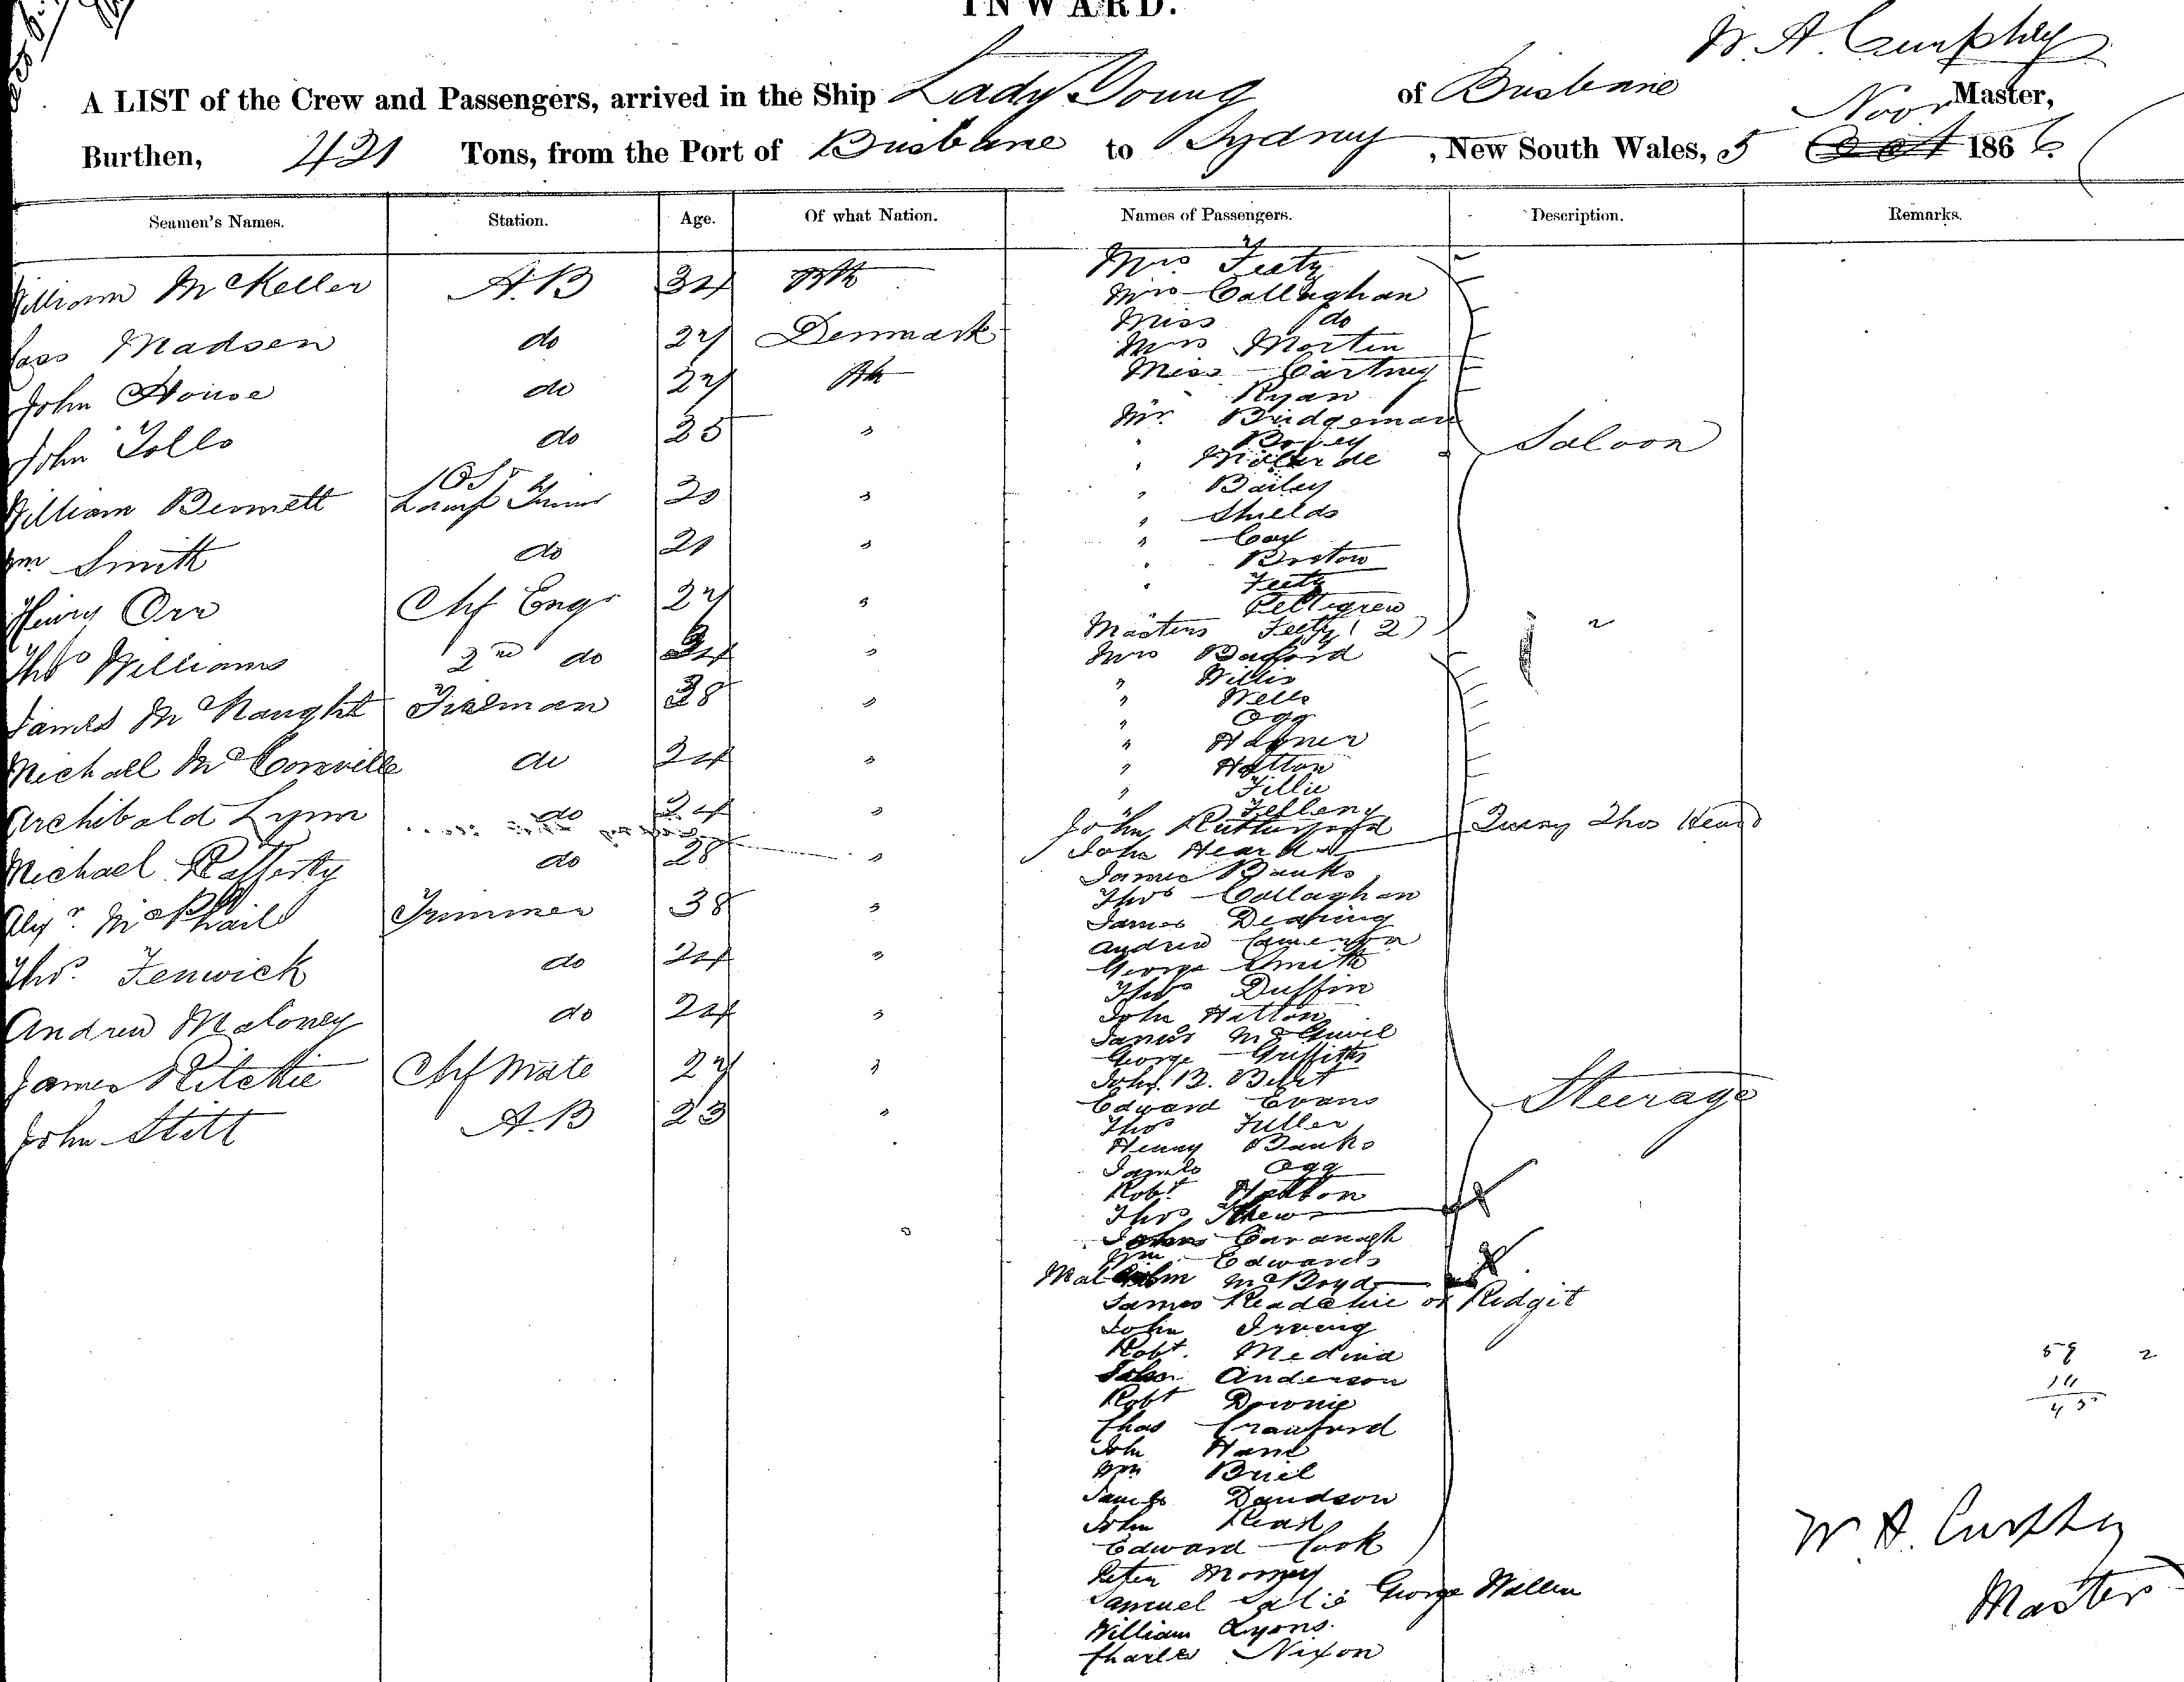 INWARD.
W. A. Curphey
A LIST of the Crew and Passengers, arrived in the Ship Lady Young of Brisbane Master,
Novr
Burthen, 421 Tons, from the Port of Brisbane to Sydney, New South Wales, 5 Oct 1866
Seamen's Names. Station. Age. Of what Nation. Names of Passengers. Description. Remarks.
William McKeller A.B 34
Madsen do 27 Denmark
John House do 27
John Tollo do 25 "
William Bennett Lamp Trimr 20 "
Wm Smith do 21 "
Henry Orr Chf Engr 27 "
Thos Williams 2nd do "
James McNaught Fireman 38 "
Michael McConville do 24 "
Archibald Lynn do 24 "
Michael Rafferty do 28 "
Alexr. McPhail Trimmer 38 "
Thos. Fenwick do 24 "
Andrew Maloney do 24 "
James Ritchie Chf Mate 27 "
John Stitt A.B 23 "
Mrs Feety
Mrs Callaghan
Miss do
Mrs Mortin
Miss Cartney
Ryan
Mr. Bridgeman
"
"
" Bailey
" Shields
" Cox
" Boston
" Feety
Pettigrew
Masters Feety (2)
Saloon
Mrs Basford
" Willis
" Wells
" Ogg
" Hagner
" Hatton
" Fillie
" Felleny
John Rutherford
John Heard Query Thos Heard
James Banks
Thos Callaghan
James Dearing
Andrew Cameron
George Smith
Thos Duffin
John Hatton
James
George Griffiths
John B. Birt
Edward Evans
Thos Fuller
Henry Banks
James Ogg
Robt Hatton
Thos Thew
Steerage
John Cavanagh
Wm Edwards
Malcolm McBoyd
James Readchie or Ridgit
John Irving
Robt. Medina
John Anderson
Robt Downie
Chas Crawford
John Hand
Wm Briel
James Davidson
John Read
Edward Cook
Peter Morrey
Samuel Lalie George Wallen
William Lyons.
Charles Nixon
59 2
14
45
W. A. Curphey
Master